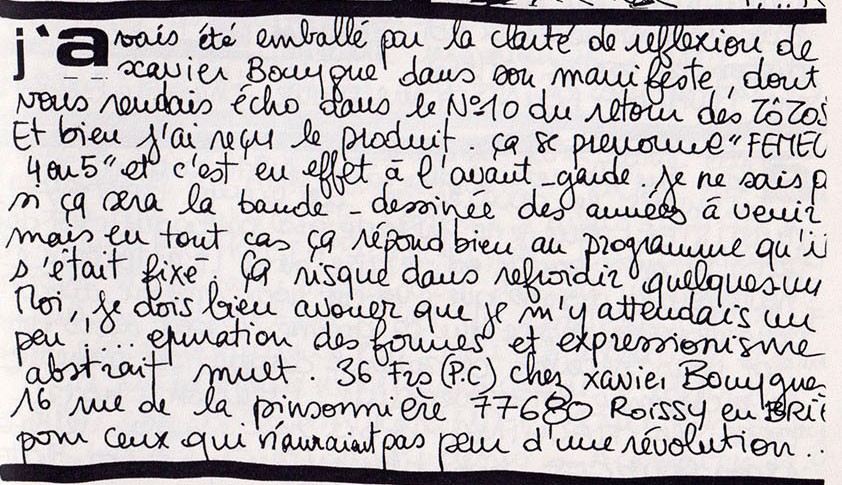 j'avais été emballé par la clarté de reflexion de
xavier Bouygue dans son manifeste, dont
vous rendais écho dans le N°10 du retour des ZôZos
Et bien j'ai reçu le produit. ça se prenomme "FEMEL
4 ou 5" et c'est en effet à l'avant-garde. Je ne sais p
si ça sera la bande-dessinée des années à venir
mais en tout cas ça répond bien au programme qu'i
s'était fixé. ça risque dans refroidir quelques-un
Moi, je dois bien avouer que je m'y attendais un
peu .... epuration des formes et expressionisme
abstrait muet. 36 Frs (P.C) chez xavier Bouygue
16 rue de la pinsonnière 77680 Roissy en BRIE
pour ceux qui n'auraient pas peur d'une révolution..